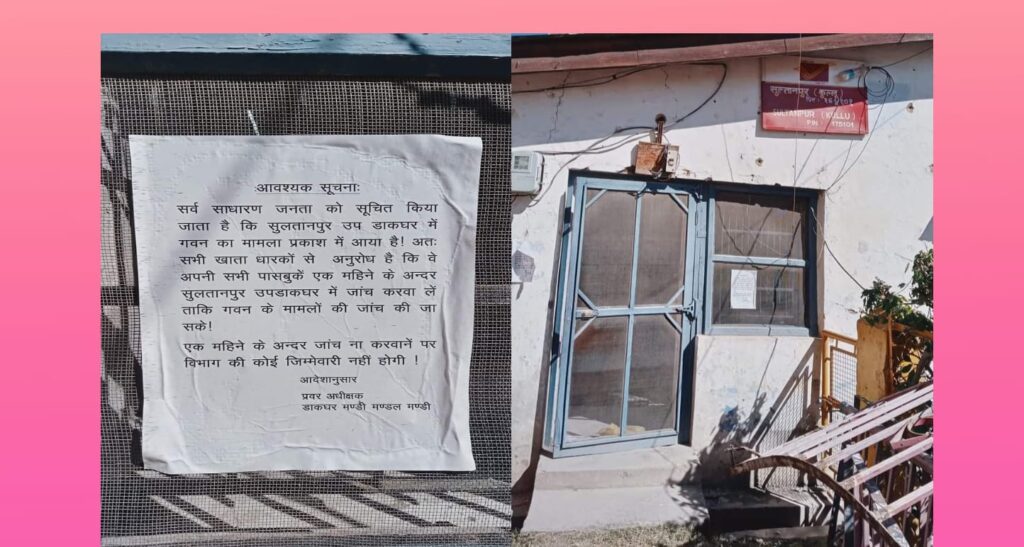 आवश्यक सूचनाः
सर्व साधारण जनता को सूचित किया
जाता है कि सुलतानपुर उप डाकघर में
गवन का मामला प्रकाश में आया है! अतः
सभी खाता धारकों से अनुरोध है कि वे
अपनी सभी पासबुकें एक महिने के अन्दर
सुलतानपुर उपडाकघर में जांच करवा लें
ताकि गवन के मामलों की जांच की जा
सके!
एक महिने के अन्दर जांच ना करवानें पर
विभाग की कोई जिम्मेवारी नहीं होगी !
आदेशानुसार
प्रवर अधीक्षक
डाकघर मण्डी मण्डल मण्डी
सुल्तानपुर (कुल्लू)
पिन: १७५१०१
SULTANPUR (KULLU)
PIN 175101